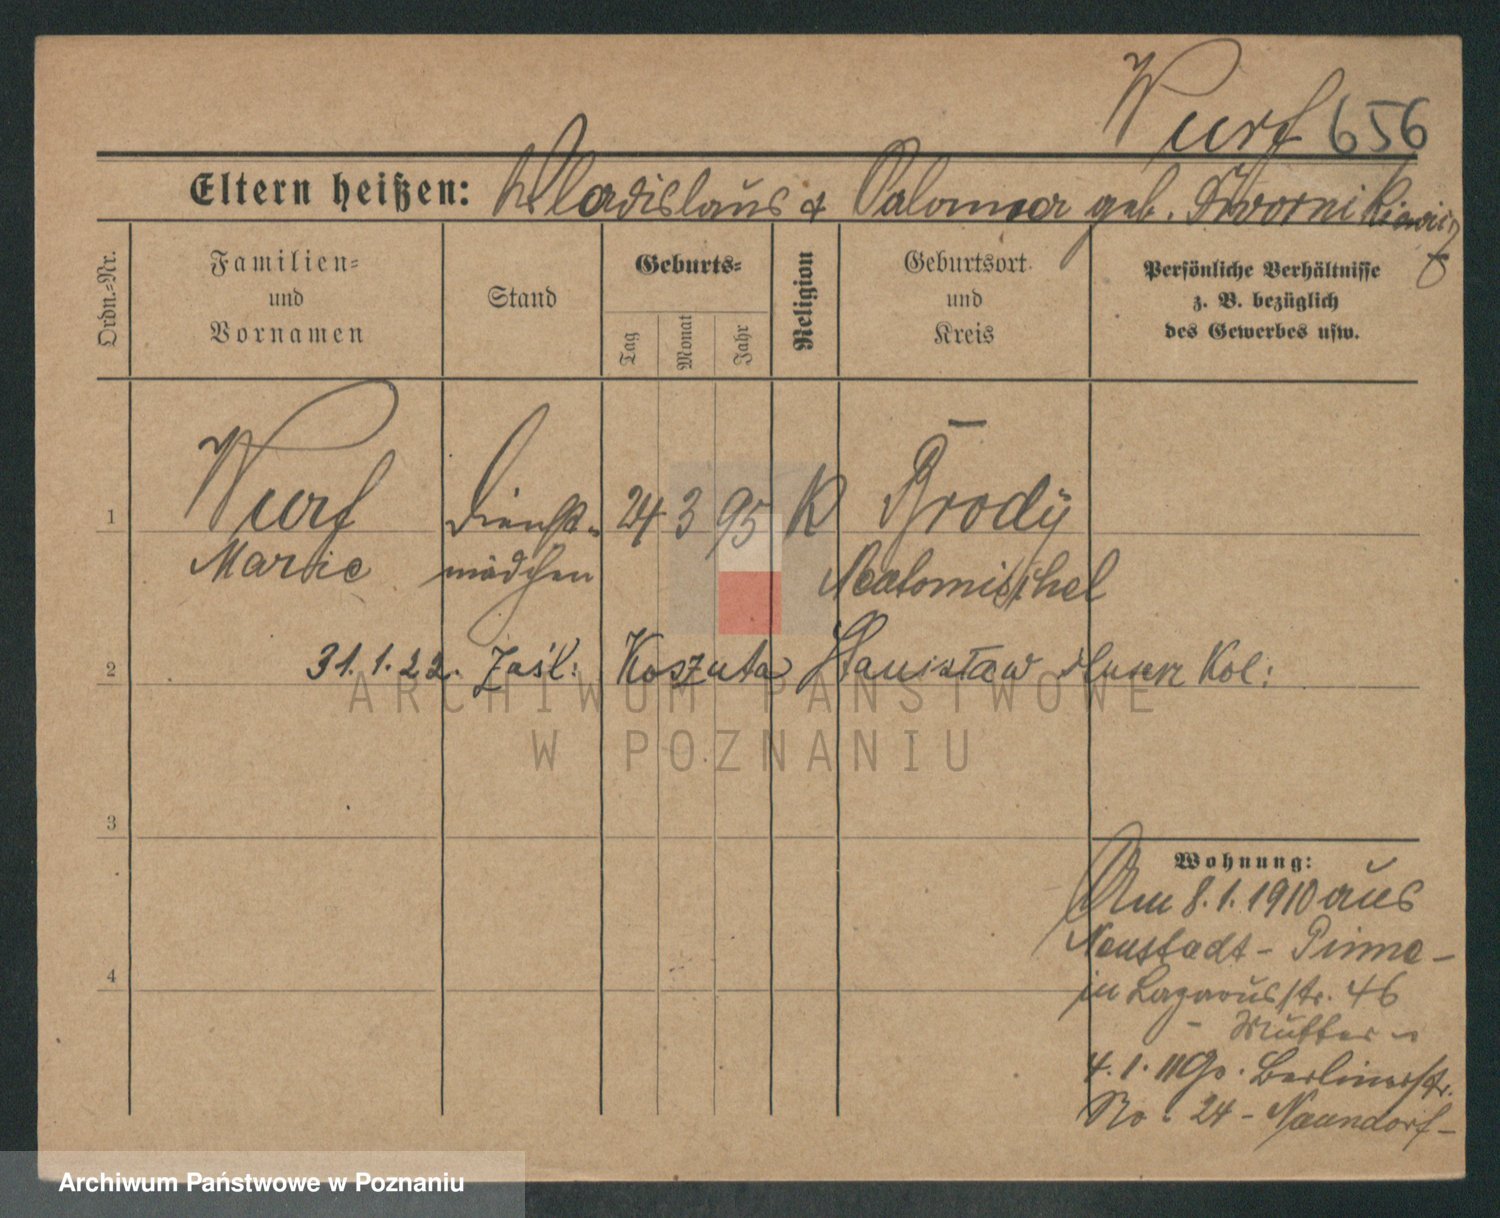 Wurf 656
Eltern heißen: Wladislaus & Salomea geb. Dwornikiewicz
Ordn.-Nr.
Familien-
und
Vornamen
Stand
Geburts-
Tag
Monat
Jahr
Religion
Geburtsort
und
Kreis
Persönliche Verhältnisse
z. B. bezüglich
des Gewerbes usw.
1 Wurf Dienst- 24 3 95 K Brody
Marie mädchen Neutomischel
2 31.1.22. Zaśl: Koszuta Stanisław Kol:
3
4
Wohnung:
Am 8.1.1910 aus
Neustadt - Pinne -
in Lazarusstr. 46
- Mutter -
4.1.11 Berlinerstr.
No 24 - Naundorf -
ARCHIWUM PAŃSTWOWE
W POZNANIU
Archiwum Państwowe w Poznaniu